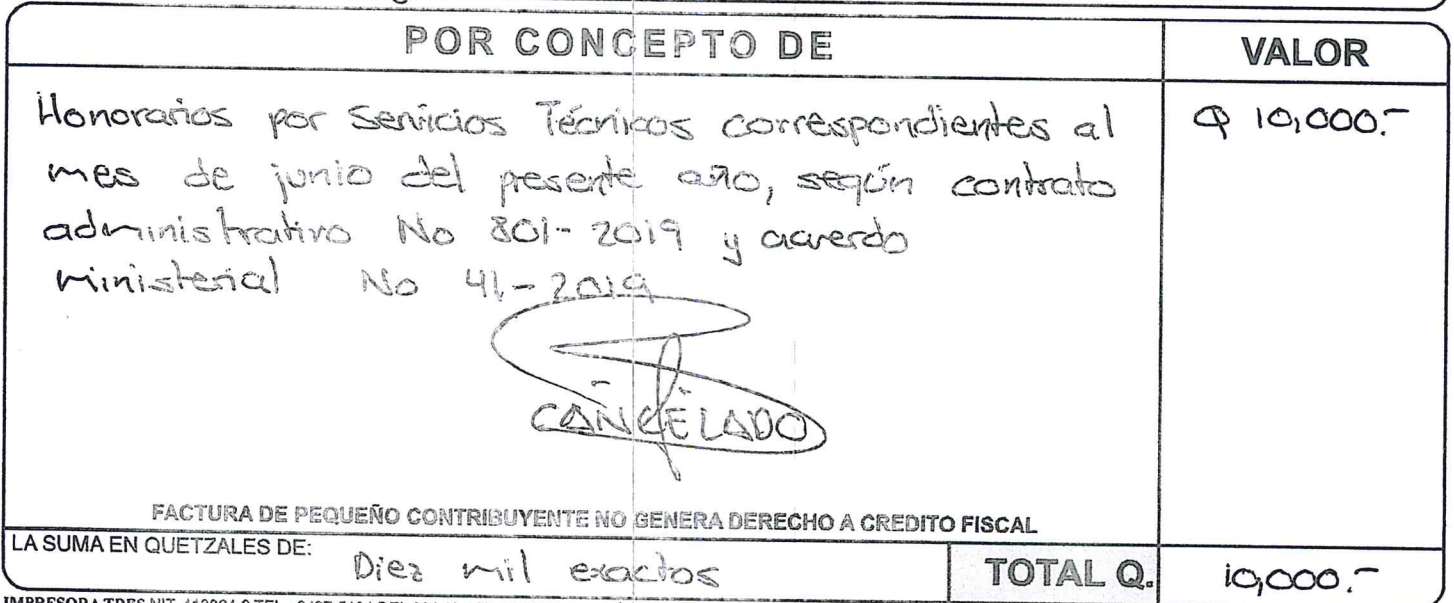 POR CONCEPTO DE
VALOR
Honorarios por Servicios Técnicos correspondientes al
Q 10,000.-
mes de junio del presente año, según contrato
administrativo No 801-2019 y acuerdo
ministerial No 41-2019
CANCELADO
FACTURA DE PEQUEÑO CONTRIBUYENTE NO GENERA DERECHO A CREDITO FISCAL
LA SUMA EN QUETZALES DE: Diez mil exactos
TOTAL Q. 10,000.-
IMPRESORA TRES NIT.